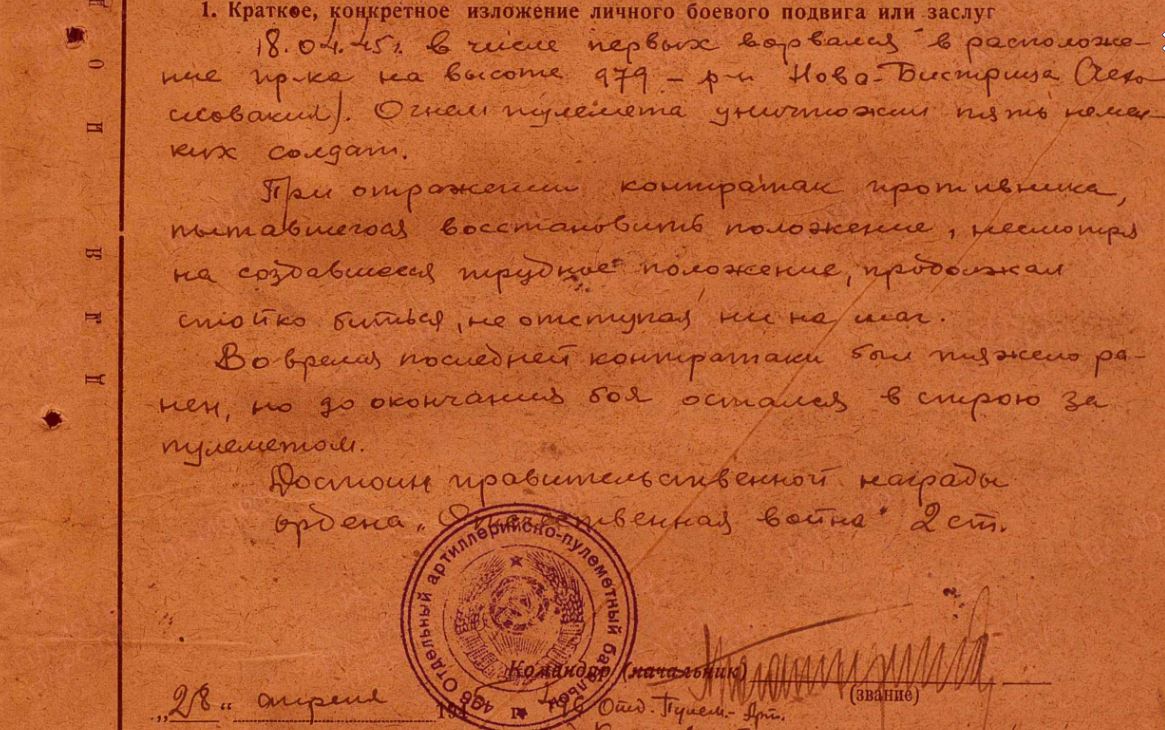 1. Краткое, конкретное изложение личного боевого подвига или заслуг
18.04.45г. в числе первых ворвался в расположе-
ние пр-ка на высоте 979 – р-н Нова-Бистрица (Чехо
словакия). Огнем пулемета уничтожил пять немец-
ких солдат.
При отражении контратак противника,
пытавшегося восстановить положение, несмотря
на создавшееся трудное положение, продолжал
стойко биться, не отступая ни на шаг.
Во время последней контратаки был тяжело ра-
нен, но до окончания боя остался в строю за
пулеметом.
Достоин правительственной награды
ордена „Отечественная война" 2 ст.
496 отдельный артиллерийско-пулеметный батальон
Командир (начальник)
(звание)
„28" апреля 194 г.
496 Отд. Пулем.- Арт.